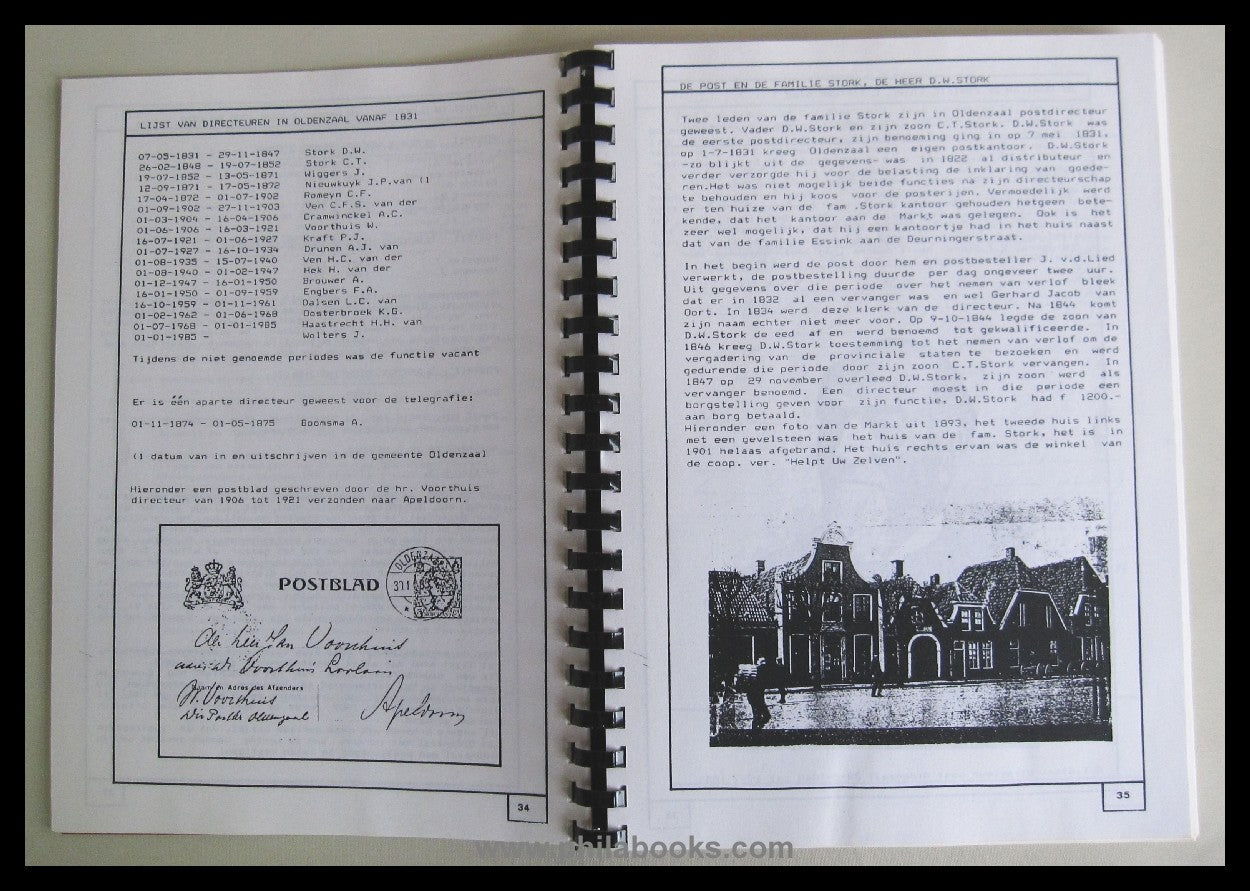 LIJST VAN DIRECTEUREN IN OLDENZAAL VANAF 1831
07-05-1831 - 29-11-1847 Stork D.W.
26-02-1848 - 19-07-1852 Stork C.T.
19-07-1852 - 13-05-1871 Wiggers J.
12-09-1871 - 17-05-1872 Nieuwkuyk J.P.van (1
17-04-1872 - 01-07-1902 Romeyn C.F.
01-09-1902 - 27-11-1903 Ven C.F.S. van der
01-03-1904 - 16-04-1906 Cramwinckel A.C.
01-06-1906 - 16-03-1921 Voorthuis W.
16-07-1921 - 01-06-1927 Kraft P.J.
01-07-1927 - 16-10-1934 Drunen A.J. van
01-08-1935 - 15-07-1940 Ven H.C. van der
01-08-1940 - 01-02-1947 Hek H. van der
01-12-1947 - 16-01-1950 Brouwer A.
16-01-1950 - 01-09-1959 Engbers F.A.
16-10-1959 - 01-11-1961 Dalsen L.C. van
01-02-1962 - 01-06-1968 Oosterbroek K.G.
01-07-1968 - 01-01-1985 Haastrecht H.H. van
01-01-1985 - Wolters J.
Tijdens de niet genoemde periodes was de functie vacant
Er is één aparte directeur geweest voor de telegrafie:
01-11-1874 - 01-05-1875 Boomsma A.
(1 datum van in en uitschrijven in de gemeente Oldenzaal
Hieronder een postblad geschreven door de hr. Voorthuis
directeur van 1906 tot 1921 verzonden naar Apeldoorn.
POSTBLAD
OLDENZAAL
Voorthuis
Voorthuis
Naam en Adres des Afzenders
W. Voorthuis
Oldenzaal
Apeldoorn
34
DE POST EN DE FAMILIE STORK, DE HEER D.W.STORK
Twee leden van de familie Stork zijn in Oldenzaal postdirecteur
geweest. Vader D.W.Stork en zijn zoon C.T.Stork. D.W.Stork was
de eerste postdirecteur, zijn benoeming ging in op 7 mei 1831,
op 1-7-1831 kreeg Oldenzaal een eigen postkantoor. D.W.Stork
-zo blijkt uit de gegevens- was in 1822 al distributeur en
verder verzorgde hij voor de belasting de inklaring van goede-
ren.Het was niet mogelijk beide functies na zijn directeurschap
te behouden en hij koos voor de posterijen. Vermoedelijk werd
er ten huize van de fam .Stork kantoor gehouden hetgeen bete-
kende, dat het kantoor aan de Markt was gelegen. Ook is het
zeer wel mogelijk, dat hij een kantoortje had in het huis naast
dat van de familie Essink aan de Deurningerstraat.
In het begin werd de post door hem en postbesteller J. v.d.Lied
verwerkt, de postbestelling duurde per dag ongeveer twee uur.
Uit gegevens over die periode over het nemen van verlof bleek
dat er in 1832 al een vervanger was en wel Gerhard Jacob van
Oort. In 1834 werd deze klerk van de directeur. Na 1844 komt
zijn naam echter niet meer voor. Op 9-10-1844 legde de zoon van
D.W.Stork de eed af en werd benoemd tot gekwalificeerde. In
1846 kreeg D.W.Stork toestemming tot het nemen van verlof om de
vergadering van de provinciale staten te bezoeken en werd
gedurende die periode door zijn zoon C.T.Stork vervangen. In
1847 op 29 november overleed D.W.Stork, zijn zoon werd als
vervanger benoemd. Een directeur moest in die periode een
borgstelling geven voor zijn functie, D.W.Stork had f 1200.-
aan borg betaald.
Hieronder een foto van de Markt uit 1893, het tweede huis links
met een gevelsteen was het huis van de fam. Stork, het is in
1901 helaas afgebrand. Het huis rechts ervan was de winkel van
de coop. ver. "Helpt Uw Zelven".
35
www.philabooks.com